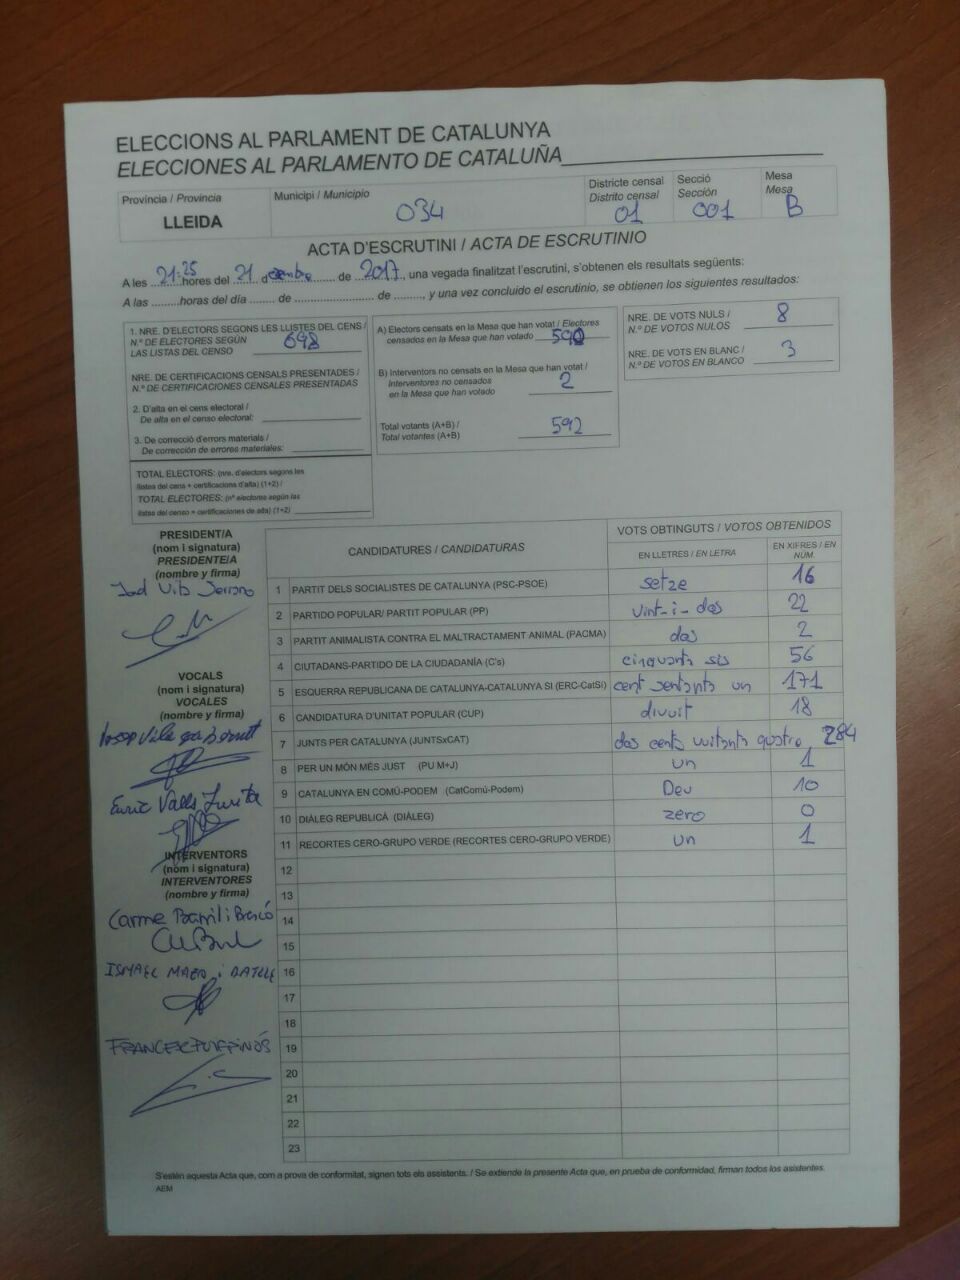 ELECCIONS AL PARLAMENT DE CATALUNYA
ELECCIONES AL PARLAMENTO DE CATALUÑA
Província / Provincia
LLEIDA
Municipi / Municipio
034
Districte censal
Distrito censal
01
Secció
Sección
001
Mesa
Mesa
B
ACTA D'ESCRUTINI / ACTA DE ESCRUTINIO
A les 21:25 hores del 21 desembre de 2017, una vegada finalitzat l'escrutini, s'obtenen els resultats següents:
A las .........horas del día ........ de ........................ de ........, y una vez concluido el escrutinio, se obtienen los siguientes resultados:
1. NRE. D'ELECTORS SEGONS LES LLISTES DEL CENS /
N.º DE ELECTORES SEGÚN
LAS LISTAS DEL CENSO 698
NRE. DE CERTIFICACIONS CENSALS PRESENTADES /
N.º DE CERTIFICACIONES CENSALES PRESENTADAS
2. D'alta en el cens electoral /
De alta en el censo electoral:
3. De correcció d'errors materials /
De corrección de errores materiales:
TOTAL ELECTORS: (nre. d'electors segons les
llistes del cens + certificacions d'alta) (1+2) /
TOTAL ELECTORES: (nº electores según las
listas del censo + certificaciones de alta) (1+2)
A) Electors censats en la Mesa que han votat / Electores
censados en la Mesa que han votado 590
B) Interventors no censats en la Mesa que han votat /
Interventores no censados
en la Mesa que han votado 2
Total votants (A+B) /
Total votantes (A+B) 592
NRE. DE VOTS NULS /
N.º DE VOTOS NULOS 8
NRE. DE VOTS EN BLANC /
N.º DE VOTOS EN BLANCO 3
PRESIDENT/A
(nom i signatura)
PRESIDENTE/A
(nombre y firma)
VOCALS
(nom i signatura)
VOCALES
(nombre y firma)
Enric Valls Zurita
INTERVENTORS
(nom i signatura)
INTERVENTORES
(nombre y firma)
Carme
ISMAEL
CANDIDATURES / CANDIDATURAS
VOTS OBTINGUTS / VOTOS OBTENIDOS
EN LLETRES / EN LETRA
EN XIFRES / EN NÚM.
1 PARTIT DELS SOCIALISTES DE CATALUNYA (PSC-PSOE) setze 16
2 PARTIDO POPULAR/ PARTIT POPULAR (PP) vint-i-dos 22
3 PARTIT ANIMALISTA CONTRA EL MALTRACTAMENT ANIMAL (PACMA) dos 2
4 CIUTADANS-PARTIDO DE LA CIUDADANÍA (C's) cinquanta sis 56
5 ESQUERRA REPUBLICANA DE CATALUNYA-CATALUNYA SI (ERC-CatSí) cent setanta un 171
6 CANDIDATURA D'UNITAT POPULAR (CUP) divuit 18
7 JUNTS PER CATALUNYA (JUNTSxCAT) dos cents vuitanta quatre 284
8 PER UN MÓN MÉS JUST (PU M+J) un 1
9 CATALUNYA EN COMÚ-PODEM (CatComú-Podem) Deu 10
10 DIÀLEG REPUBLICÀ (DIÀLEG) zero 0
11 RECORTES CERO-GRUPO VERDE (RECORTES CERO-GRUPO VERDE) un 1
12
13
14
15
16
17
18
19
20
21
22
23
S'estén aquesta Acta que, com a prova de conformitat, signen tots els assistents. / Se extiende la presente Acta que, en prueba de conformidad, firman todos los asistentes.
AEM